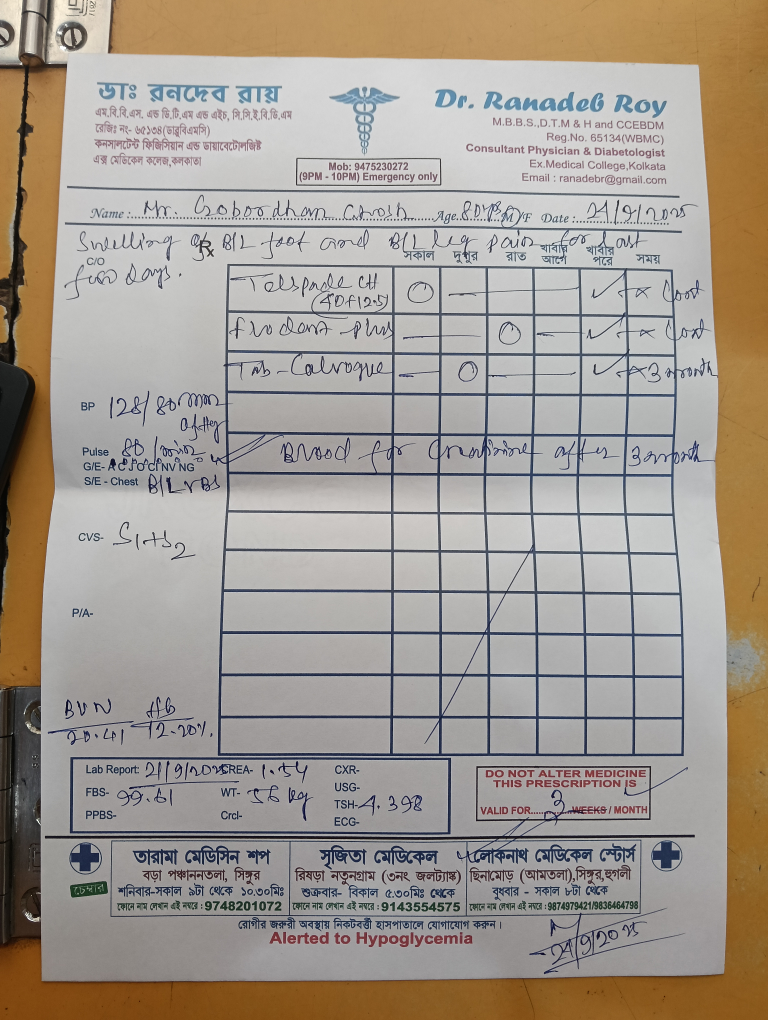 ডাঃ রনদেব রায়
এম.বি.বি.এস, এন্ড ডি.টি.এম এন্ড এইচ, সি.সি.ই.বি.ডি.এম
রেজিঃ নং- ৬৫১৩৪(ডাব্লুবিএমসি)
কনসালটেন্ট ফিজিসিয়ান এন্ড ডায়াবেটোলজিষ্ট
এক্স মেডিকেল কলেজ,কলকাতা
Mob: 9475230272
(9PM - 10PM) Emergency only
Dr. Ranadeb Roy
M.B.B.S.,D.T.M & H and CCEBDM
Reg.No. 65134(WBMC)
Consultant Physician & Diabetologist
Ex.Medical College,Kolkata
Email : ranadebr@gmail.com
Name : Mr. Gobordhan Ghosh Age. 80yrs M/F Date : 21/9/2025
Swelling of B/L foot and B/L leg pain for last
few days.
C/O
Rx
সকাল দুপুর রাত খাবার আগে খাবার পরে সময়
(40+12.5)
Cont
Cont
Tab- 3 month
BP 128/80 mm
Pulse 80/min
G/E-
Blood for Creatinine after 3 month
S/E - Chest B/L VBS
CVS- S1+S2
P/A-
BUN 20.41
Hb 12.20%.
Lab Report: 21/9/2025 CREA- 1.54 CXR-
USG-
FBS- 99.61 WT- 56 kg TSH- 4.398
PPBS- Crcl- ECG-
DO NOT ALTER MEDICINE
THIS PRESCRIPTION IS
VALID FOR 3 WEEKS / MONTH
চেম্বার
তারামা মেডিসিন শপ
বড়া পঞ্চাননতলা, সিঙ্গুর
শনিবার-সকাল ৯টা থেকে ১০.৩০মিঃ
ফোনে নাম লেখান এই নম্বরে : 9748201072
সৃজিতা মেডিকেল
রিষড়া নতুনগ্রাম (৩নং জলট্যাঙ্ক)
শুক্রবার- বিকাল ৫.৩০মিঃ থেকে
ফোনে নাম লেখান এই নম্বরে : 9143554575
লোকনাথ মেডিকেল স্টোর্স
ছিনামোড় (আমতলা),সিঙ্গুর,হুগলী
বুধবার - সকাল ৮টা থেকে
ফোনে নাম লেখান এই নম্বরে : 9874979421/9836464798
রোগীর জরুরী অবস্থায় নিকটবর্ত্তী হাসপাতালে যোগাযোগ করুন।
Alerted to Hypoglycemia
21/9/2025